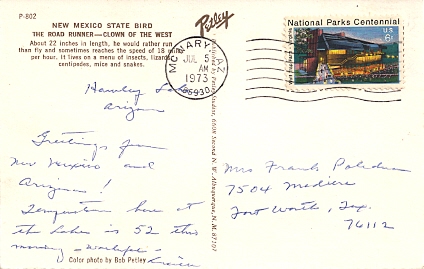 P-802
NEW MEXICO STATE BIRD
THE ROAD RUNNER—CLOWN OF THE WEST
About 22 inches in length, he would rather run
than fly and sometimes reaches the speed of 18 miles
per hour. It lives on a menu of insects, lizards,
centipedes, mice and snakes.
Petley
McNARY, AZ
JUL 5
AM
1973
85930
National Parks Centennial
Wolf Trap Farm, Virginia
U.S.
6c
Hawley Lake
Arizona
Greetings from
New Mexico and
Arizona!
Temperature here at
the lake is 52 this
morning
Mrs Frank
7504
Fort Worth, Tex.
76112
Color photo by Bob Petley